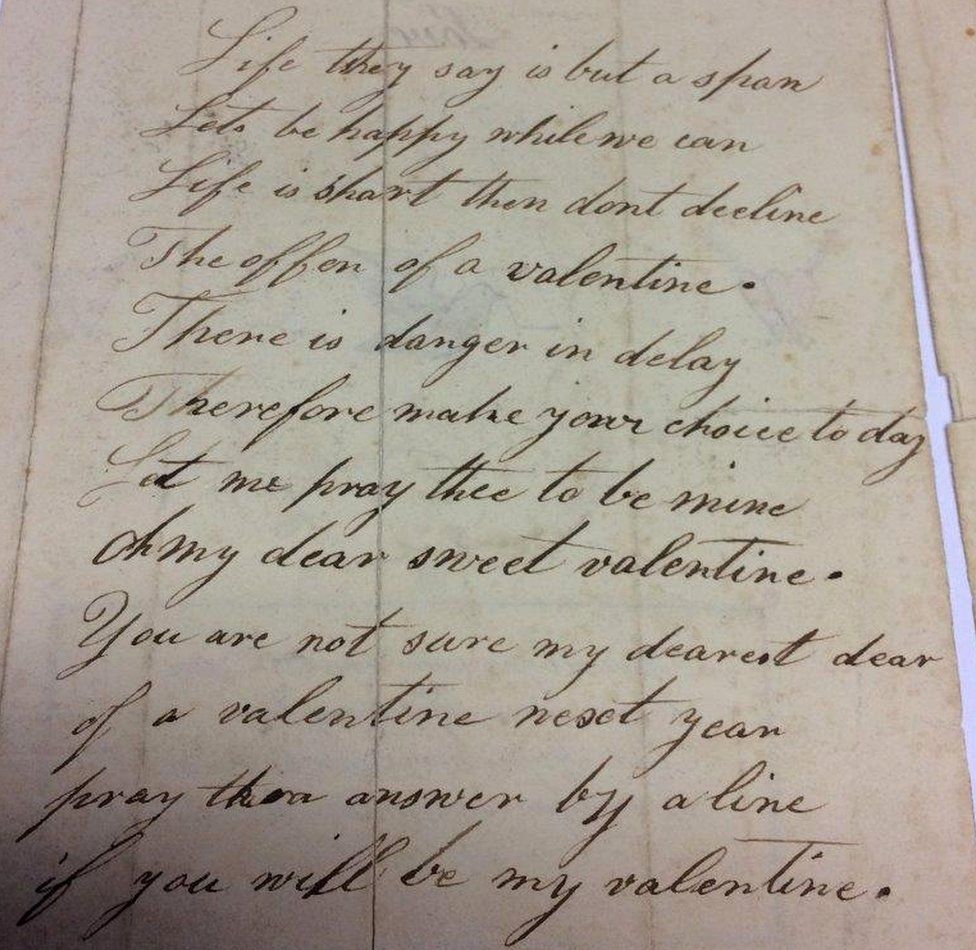 Life they say is but a span
Lets be happy while we can
Life is short then dont decline
The offer of a valentine.
There is danger in delay
Therefore make your choice to day
Let me pray thee to be mine
Oh my dear sweet valentine.
You are not sure my dearest dear
of a valentine next year
pray answer by a line
if you will be my valentine.